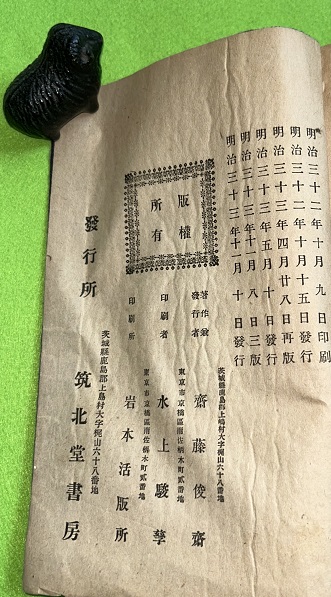 明治三十二年十月九日印刷
明治三十二年十月十五日發行
明治三十三年四月廿八日再版
明治三十三年五月十日發行
明治三十三年十一月八日三版
明治三十三年十一月十日發行
版權
所有
著作兼
發行者
茨城縣鹿島郡上島村大字梶山六十八番地
齋藤俊齋
東京市京橋區南佐柄木町貳番地
印刷者
水上駿
東京市京橋區南佐柄木町貳番地
印刷所
岩本活版所
茨城縣鹿島郡上島村大字梶山六十八番地
發行所
筑北堂書房